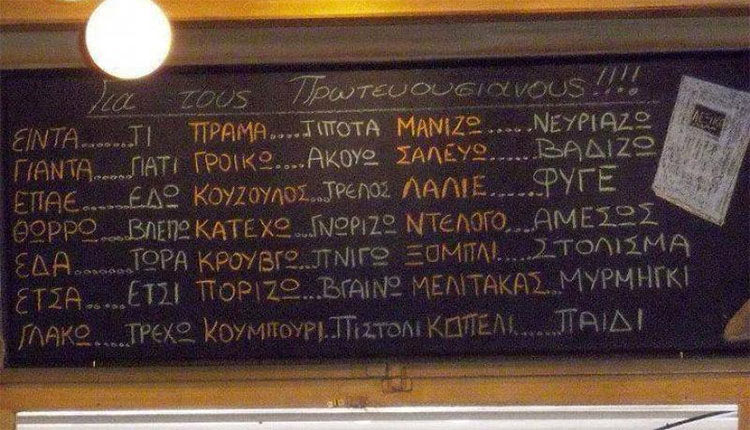 Για τους Πρωτευουσιανους!!!!
ΕΙΝΤΑ.....ΤΙ ΠΡΑΜΑ.....ΤΙΠΟΤΑ ΜΑΝΙΖΩ......ΝΕΥΡΙΑΖΩ
ΓΙΑΝΤΑ.....ΓΙΑΤΙ ΓΡΟΙΚΩ.....ΑΚΟΥΩ ΣΑΛΕΥΩ......ΒΑΔΙΖΩ
ΕΠΑΕ.....ΕΔΩ ΚΟΥΖΟΥΛΟΣ....ΤΡΕΛΟΣ ΛΑΛΙΕ.......ΦΥΓΕ
ΘΩΡΡΩ.....ΒΛΕΠΩ ΚΑΤΕΧΩ....ΓΝΩΡΙΖΩ ΝΤΕΛΟΓΟ.....ΑΜΕΣΩΣ
ΕΔΑ........ΤΩΡΑ ΚΡΟΥΒΓΩ....ΠΝΙΓΩ ΞΟΜΠΛΙ.....ΣΤΟΛΙΣΜΑ
ΕΤΣΑ.....ΕΤΣΙ ΠΟΡΙΖΩ...ΒΓΑΙΝΩ ΜΕΛΙΤΑΚΑΣ...ΜΥΡΜΗΓΚΙ
ΓΛΑΚΩ.....ΤΡΕΧΩ ΚΟΥΜΠΟΥΡΙ..ΠΙΣΤΟΛΙ ΚΟΠΕΛΙ......ΠΑΙΔΙ